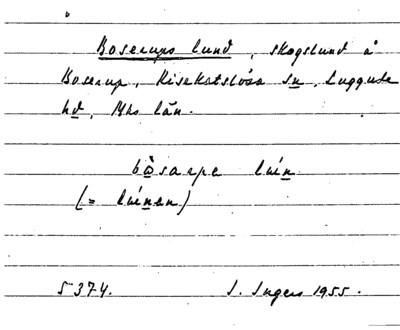 Boserups lund, skogslund å
Boserup, Risekatslösa sn, Luggude
hd, Mhs län.
bòsarpe luin
(= luinen)
5374. I. Ingers 1955.